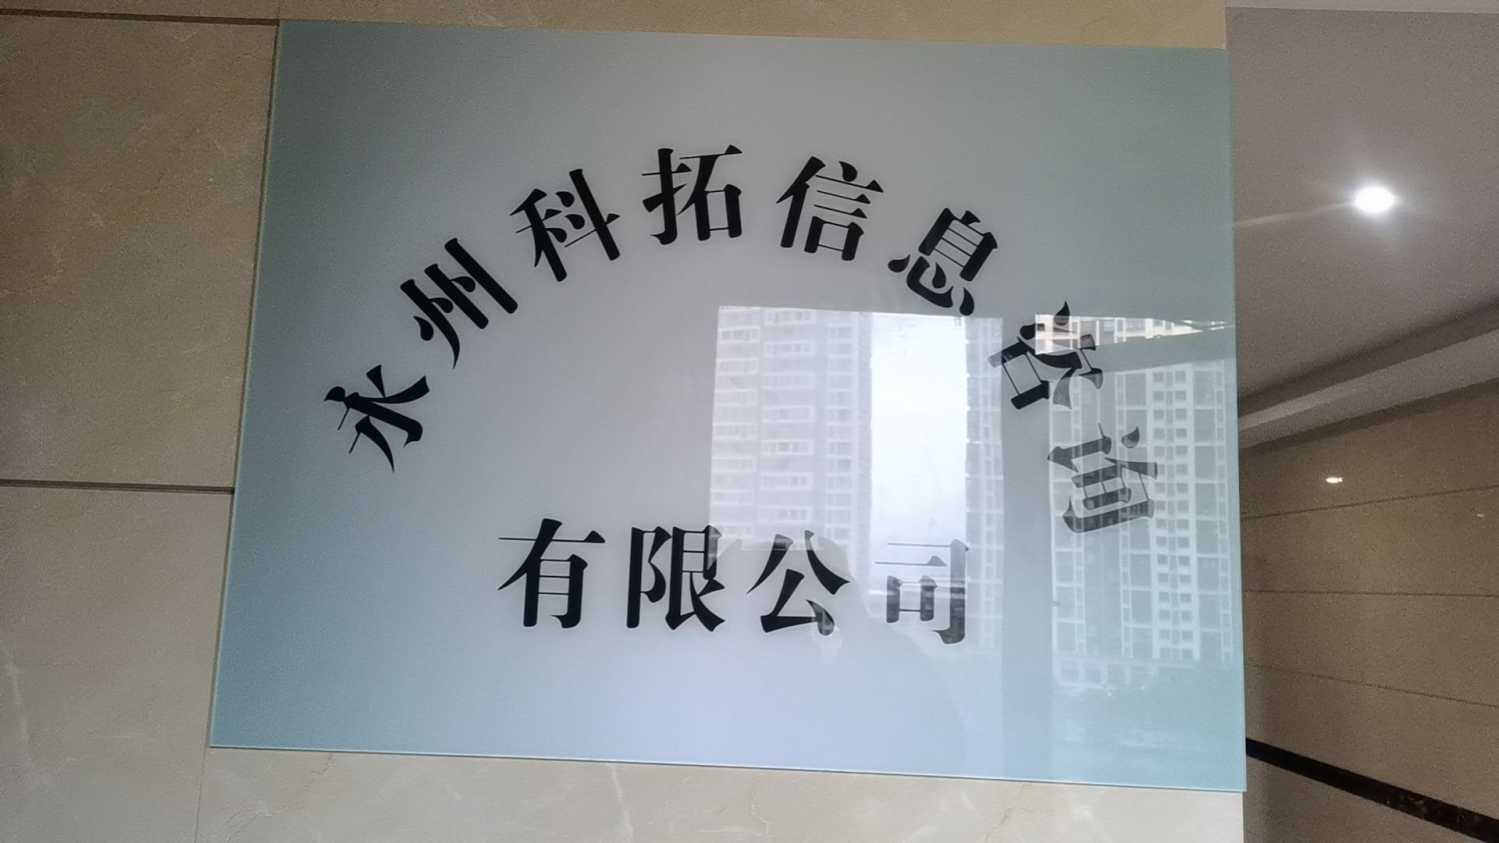 永州科拓信息咨询
有限公司